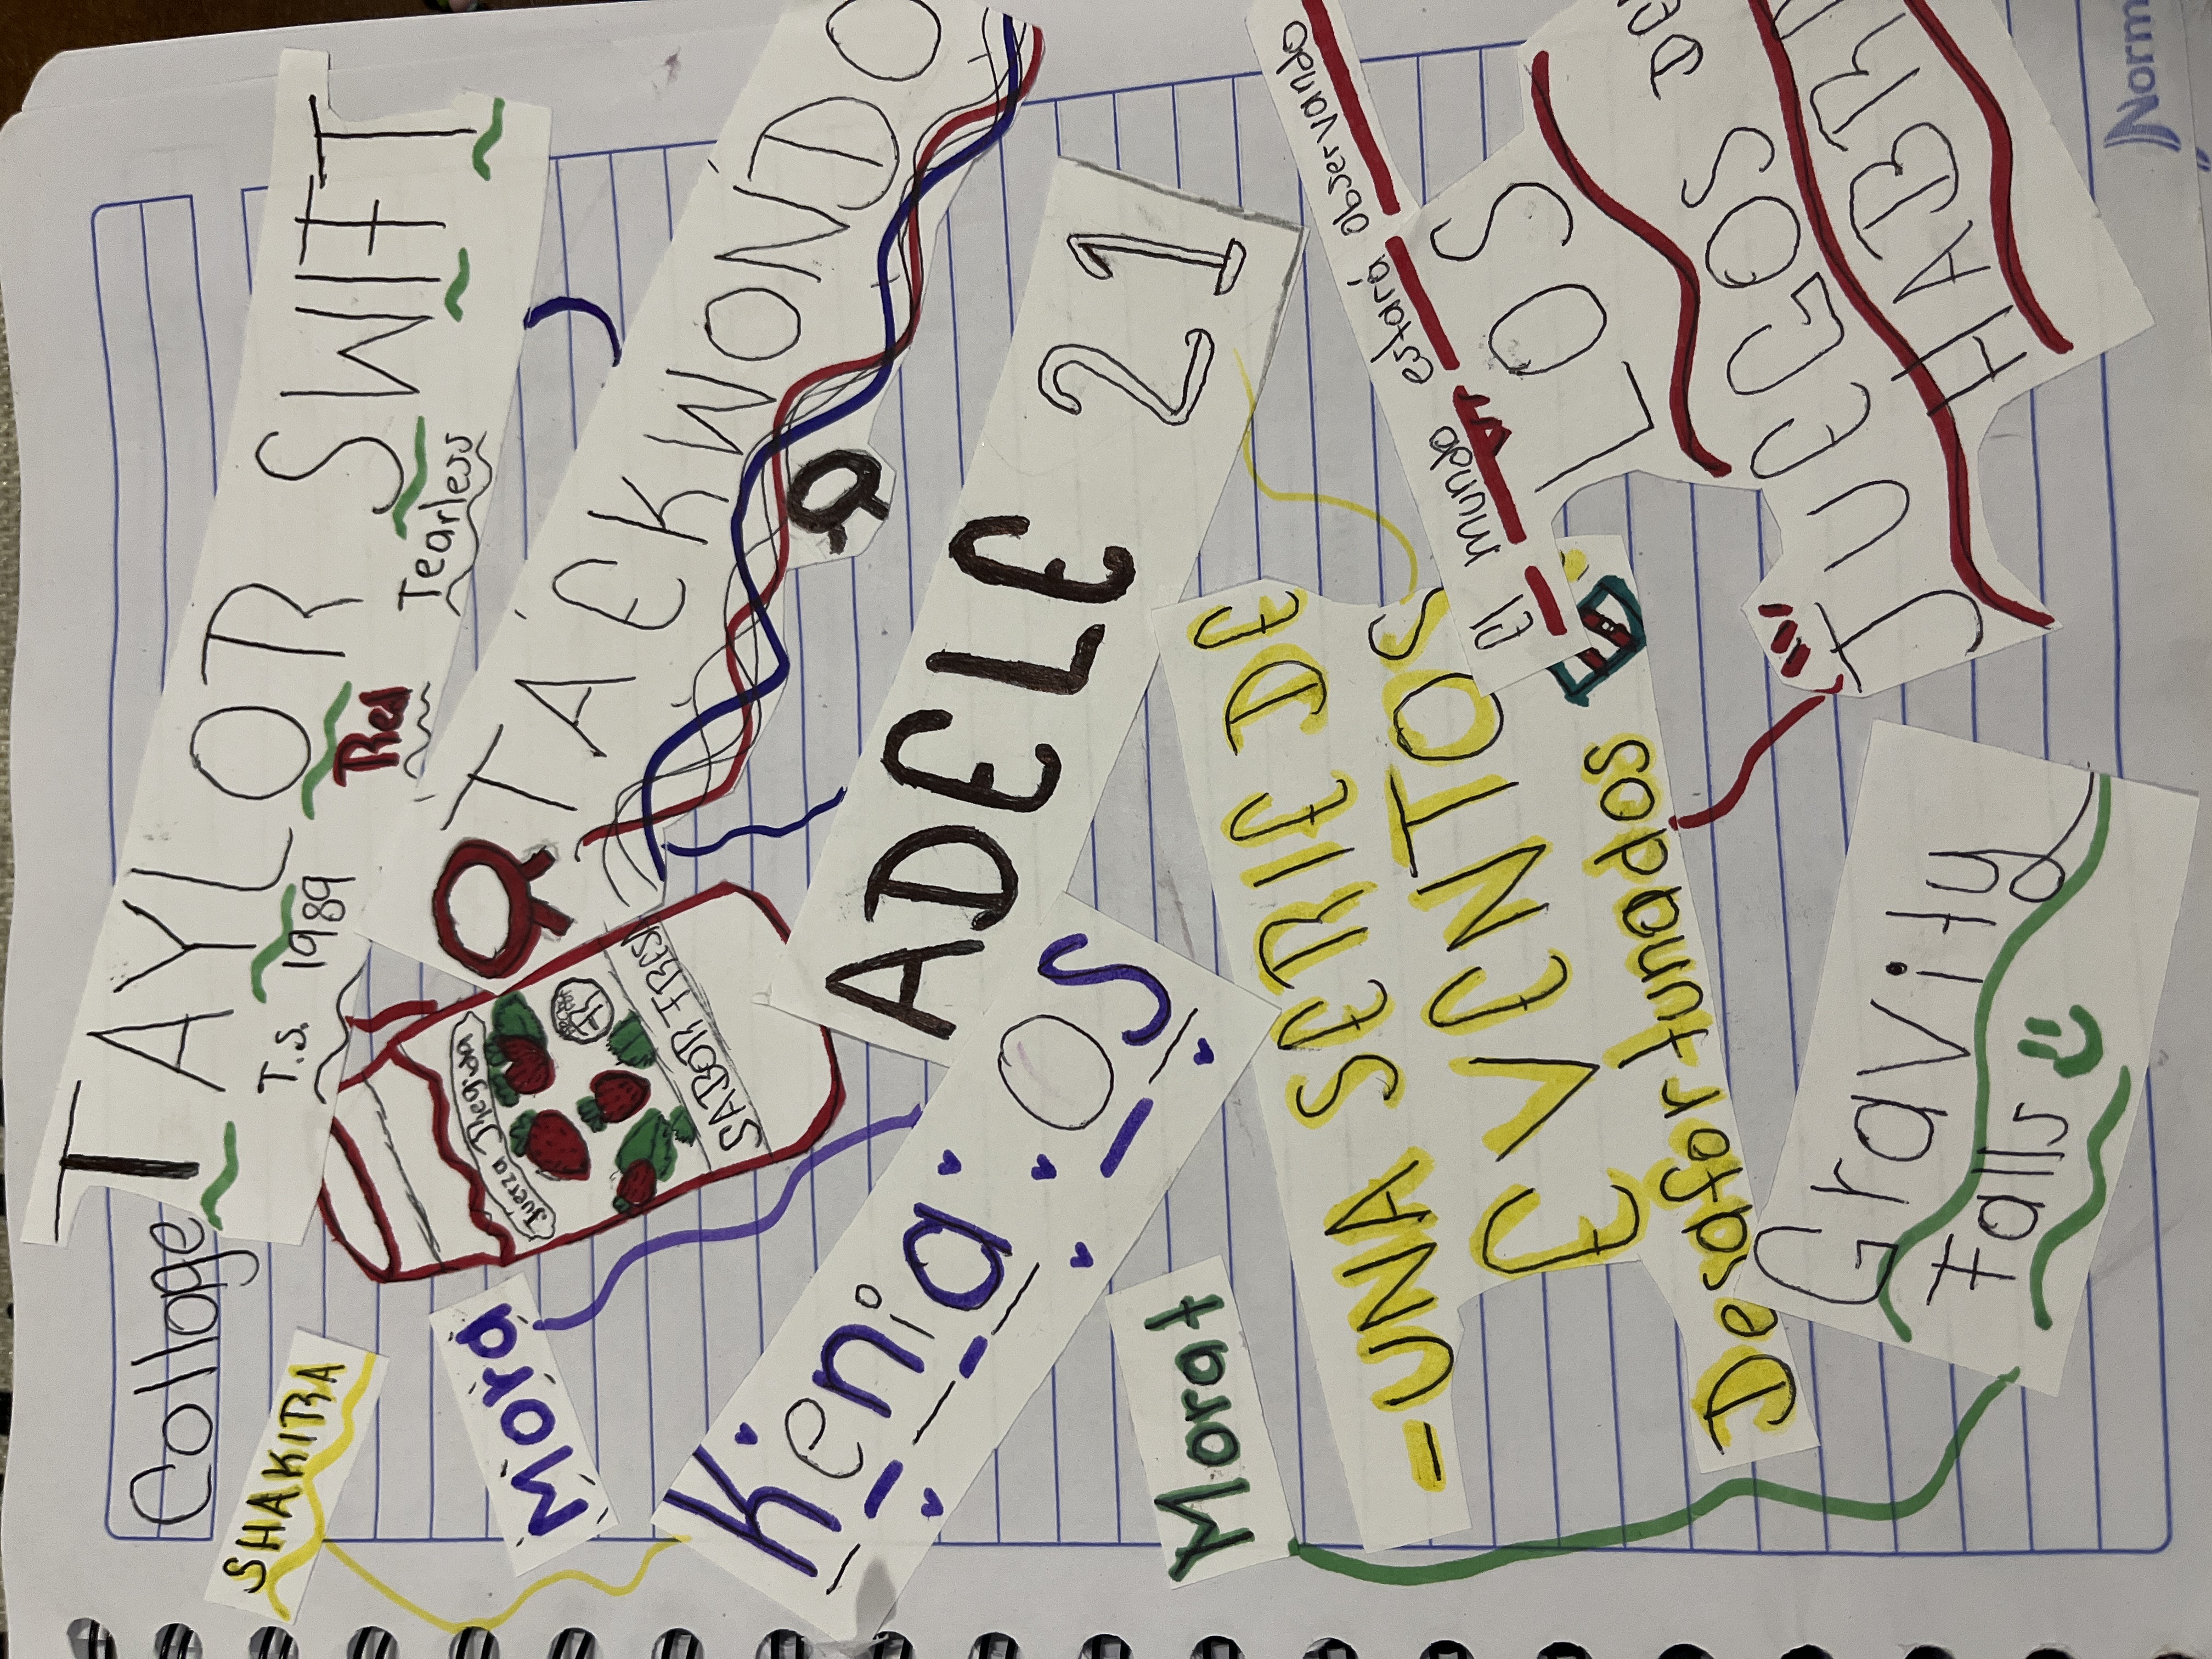 Collage
TAYLOR SWIFT
T.S. 1989 Red Tearless
SHAKIRA
TAEKWONDO
Fuerza Thegidra
SABOR FRES
Mora
ADELE 21
Kenia OS
Morat
-UNA SERIE DE
EVENTOS
Desafortunados
El mundo estará observando
LOS
JUEGOS DE
HABR
Gravity
Falls
Norm